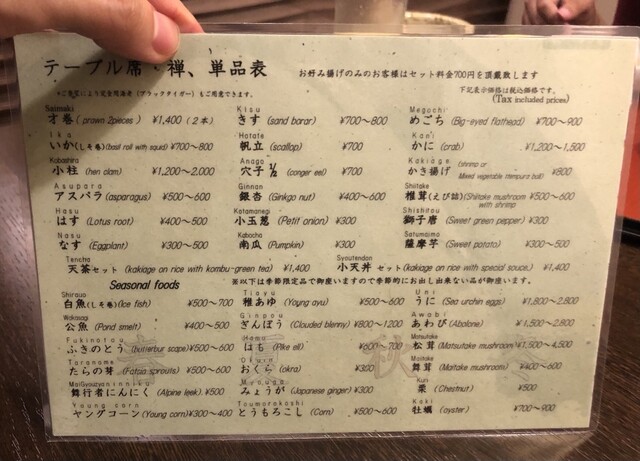 テーブル席・禅、単品表 お好み揚げのみのお客様はセット料金700円を頂戴致します
下記表示価格は税込価格です。
(Tax included prices)
Saimaki Kisu Megochi
才巻 (prawn 2pieces) ¥1,400 (2本) きす (sand borar) ¥700〜800 めごち (Big-eyed flathead) ¥700〜900
Ika Hotate Kani
いか(しそ巻)(basil roll with squid) ¥700〜800 帆立 (scallop) ¥700 かに (crab) ¥1,200〜1,500
Kobashira Anago Kakiage
小柱 (hen clam) ¥1,200〜2,000 穴子½ (conger eel) ¥700 かき揚げ (shrimp or Mixed vegetable tempura ball) ¥800
Asupara Ginnan Shiitake
アスパラ (asparagus) ¥500〜600 銀杏 (Ginkgo nut) ¥400〜600 椎茸(えび詰)(Shiitake mushroom with shrimp) ¥500〜600
Hasu Katamanegi Shishitou
はす (Lotus root) ¥400〜500 小玉葱 (Petit onion) ¥300 獅子唐 (Sweet green pepper) ¥300
Nasu Kabocha Satumaimo
なす (Eggplant) ¥300〜500 南瓜 (Pumpkin) ¥300 薩摩芋 (Sweet potato) ¥300〜500
Tencha Syoutendon
天茶セット (kakiage on rice with kombu-green tea) ¥1,400 小天丼 セット (kakiage on rice with special souce.) ¥1,400
Seasonal foods ※以下は季節限定品で御座いますので季節的にお出し出来ない品が御座います。
Shirauo Tiayu Uni
白魚(しそ巻)(Ice fish) ¥500〜700 稚あゆ (Young ayu) ¥500〜600 うに (Sea urchin eggs) ¥1,800〜2,800
Wakasagi Ginpou Awabi
公魚 (Pond smelt) ¥400〜500 ぎんぽう (Clouded blenny) ¥800〜1200 あわび (Abalone) ¥1,500〜2,800
Fukinotou Hamo Matsutake
ふきのとう (butterbur scape) ¥500〜600 はも (Pike ell) ¥600〜700 松茸 (Matsutake mushroom) ¥1,500〜4,500
Taranome Okura Maitake
たらの芽 (Fatsia sprouts) ¥500〜600 おくら (okra) ¥300 舞茸 (Maitake mushroom) ¥400〜600
MaiGyouzyaninniku Myouga Kuri
舞行者にんにく (Alpine leek) ¥500 みょうが (Japanese ginger) ¥300 栗 (Chestnut) ¥500
Young corn Toumorokoshi Kaki
ヤングコーン (Young corn) ¥300〜400 とうもろこし (Corn) ¥500〜600 牡蠣 (oyster) ¥700〜900